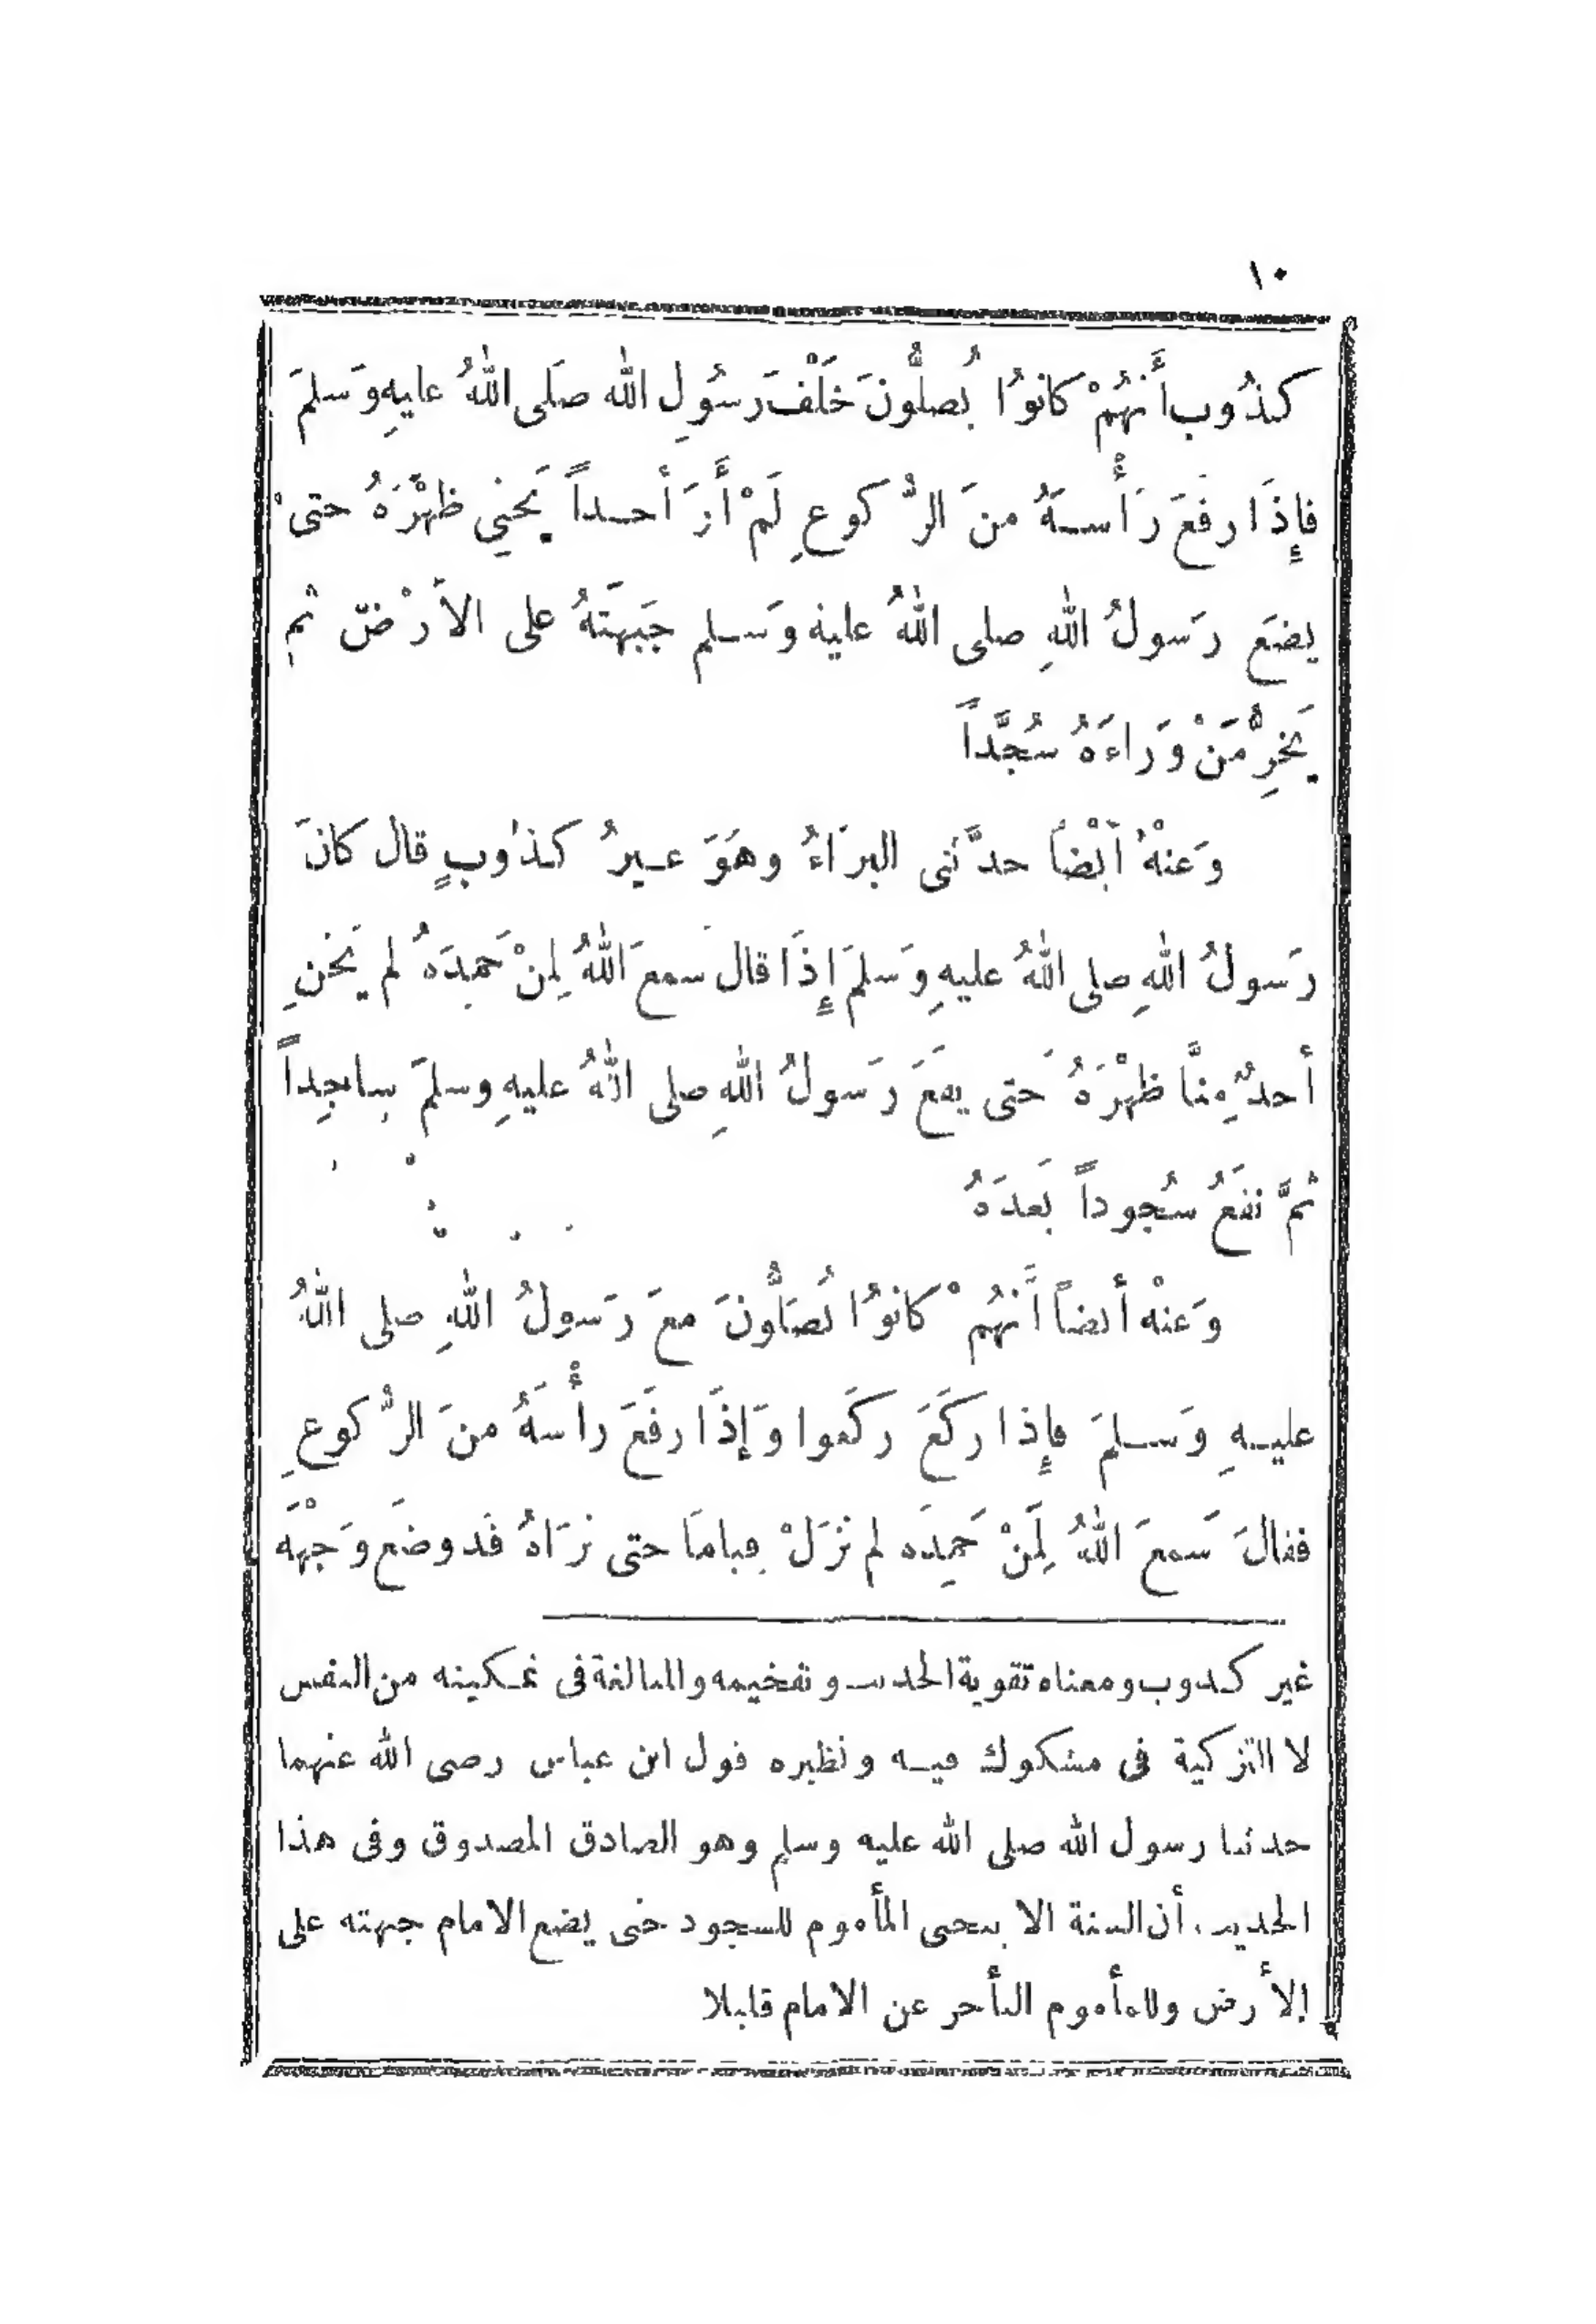 ١٠
كذُوب أَنهُمْ كانوُا يُصلُّونَ خَلْفَ رسُولِ الله صَلى اللهُ عليهِ وَسَلمَ
فإِذَا رفَعَ رَأْسَهُ منَ الرُّكوعِ لَمْ أَرَ أحداً يَحنِي ظهْرَهُ حتى
يضَع رَسولُ اللهِ صلى اللهُ عليه وَسلم جَبهَتهُ على الأرْض ثم
يَخِرُّ مَنْ وَرَاءَهُ سُجَّداً
وَعنْهُ أيْضاً حدَّثنى البرَاءُ وهَوَ غيرُ كذوبٍ قال كانَ
رَسولُ اللهِ صلى اللهُ عليهِ وَسَلمَ إِذَا قال سَمعَ اللهُ لِمنْ حَمِدَهُ لم يَحْنِ
أحدٌ مِنَّا ظهْرَهُ حَتى يقعَ رَسولُ اللهِ صلى اللهُ عليهِ وسلمَ ساجِداً
ثمَّ نقَعُ سُجوداً بَعدَهُ
وَعنْه أيضاً أَنهُمْ كانوُا يُصَلُّونَ معَ رَسولُ اللهِ صلى اللهُ
عليهِ وَسلمَ فإِذا ركَعَ ركَعوا وَإِذَا رفَعَ رأْسَهُ منَ الرُّكوعِ
فقالَ سَمعَ اللهُ لِمَنْ حَمِدَه لم نَزَلْ قِيامَا حتى نرَاهُ قَد وضَع وَجْهَه
غير كذوب ومعناه تقوية الحديث وتفخيمه والمبالغة فى تمكينه من النفس
لا التزكية فى مشكوك فيه ونظيره قول ابن عباس رضى الله عنهما
حدثنا رسول الله صلى الله عليه وسلم وهو الصادق المصدوق وفى هذا
الحديث أن السنة الا ينحنى المأموم للسجود حتى يضع الامام جبهته على
الأرض وللمأموم التأخر عن الامام قليلا